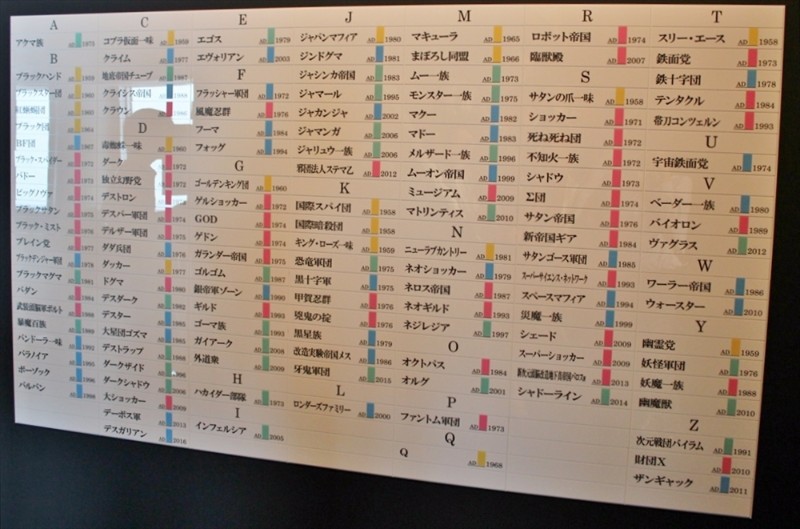 A
アクマ族 AD 1973
B
ブラックハンド AD 1959
ブラックスター団 AD 1960
紅蜘蛛団 AD 1960
ブラック団 AD 1964
BF団 AD 1967
ブラック・スパイダー AD 1972
バドー AD 1972
ビッグノヴァ AD 1974
ブラックサタン AD 1975
ブラック・ミスト AD 1976
ブレイン党 AD 1977
ブラックデンジャー軍団 AD 1978
ブラックマグマ AD 1981
バダン AD 1984
武装頭脳軍ボルト AD 1988
暴魔百族 AD 1989
バンドーラ一味 AD 1992
バラノイア AD 1995
ボーゾック AD 1996
バルバン AD 1998
C
コブラ仮面一味 AD 1959
クライム AD 1977
地底帝国チューブ AD 1987
クライシス帝国 AD 1988
クラウン AD 1986
D
毒蜘蛛一味 AD 1960
ダーク AD 1972
独立幻野党 AD 1973
デストロン AD 1973
デスパー軍団 AD 1973
デルザー軍団 AD 1975
ダダ兵団 AD 1976
ダッカー AD 1977
ドグマ AD 1980
デスダーク AD 1982
デスター AD 1985
大星団ゴズマ AD 1985
デストラップ AD 1988
ダークザイド AD 1996
ダークシャドウ AD 2006
大ショッカー AD 2009
デーボス軍 AD 2013
デスガリアン AD 2016
E
エゴス AD 1979
エヴォリアン AD 2003
F
フラッシャー軍団 AD 1972
風魔忍群 AD 1976
フーマ AD 1984
フォッグ AD 1994
G
ゴールデンキング団 AD 1960
ゲルショッカー AD 1972
GOD AD 1974
ゲドン AD 1974
ガランダー帝国 AD 1975
ゴルゴム AD 1987
銀帝軍ゾーン AD 1990
ギルド AD 1993
ゴーマ族 AD 1993
ガイアーク AD 2008
外道衆 AD 2009
H
ハカイダー部隊 AD 1973
I
インフェルシア AD 2005
J
ジャパンマフィア AD 1980
ジンドグマ AD 1981
ジャシンカ帝国 AD 1983
ジャマール AD 1995
ジャカンジャ AD 2002
ジャマンガ AD 2006
ジャリュウ一族 AD 2006
邪眼法人ステマ乙 AD 2012
K
国際スパイ団 AD 1958
国際暗殺団 AD 1958
キング・ローズ一味 AD 1959
恐竜軍団 AD 1975
黒十字軍 AD 1975
甲賀忍群 AD 1976
兇鬼の掟 AD 1976
黒星族 AD 1979
改造実験帝国メス AD 1986
牙鬼軍団 AD 2015
L
ロンダーズファミリー AD 2000
M
マキューラ AD 1965
まぼろし同盟 AD 1966
ムー一族 AD 1973
モンスター一族 AD 1975
マクー AD 1982
マドー AD 1983
メルザード一族 AD 1996
ムーオン帝国 AD 1999
ミュージアム AD 2009
マトリンティス AD 2010
N
ニューラブカントリー AD 1981
ネオショッカー AD 1979
ネロス帝国 AD 1987
ネオギルド AD 1993
ネジレジア AD 1997
O
オクトパス AD 1984
オルグ AD 2001
P
ファントム軍団 AD 1973
Q
Q AD 1968
R
ロボット帝国 AD 1974
臨獣殿 AD 2007
S
サタンの爪一味 AD 1958
ショッカー AD 1971
死ね死ね団 AD 1972
不知火一族 AD 1972
シャドウ AD 1973
Σ団 AD 1974
サタン帝国 AD 1976
新帝国ギア AD 1984
サタンゴース軍団 AD 1985
スーパーサイエンス・ネットワーク AD 1993
スペースマフィア AD 1994
災魔一族 AD 1999
シェード AD 2009
スーパーショッカー AD 2009
AD 2013
シャドーライン AD 2014
T
スリー・エース AD 1958
鉄面党 AD 1973
鉄十字団 AD 1978
テンタクル AD 1984
帯刀コンツェルン AD 1993
U
宇宙鉄面党 AD 1974
V
ベーダー一族 AD 1980
バイオロン AD 1989
ヴァグラス AD 2012
W
ワーラー帝国 AD 1986
ウォースター AD 2010
Y
幽霊党 AD 1959
妖怪軍団 AD 1976
妖魔一族 AD 1988
幽魔獣 AD 2010
Z
次元戦団バイラム AD 1991
財団X AD 2010
ザンギャック AD 2011